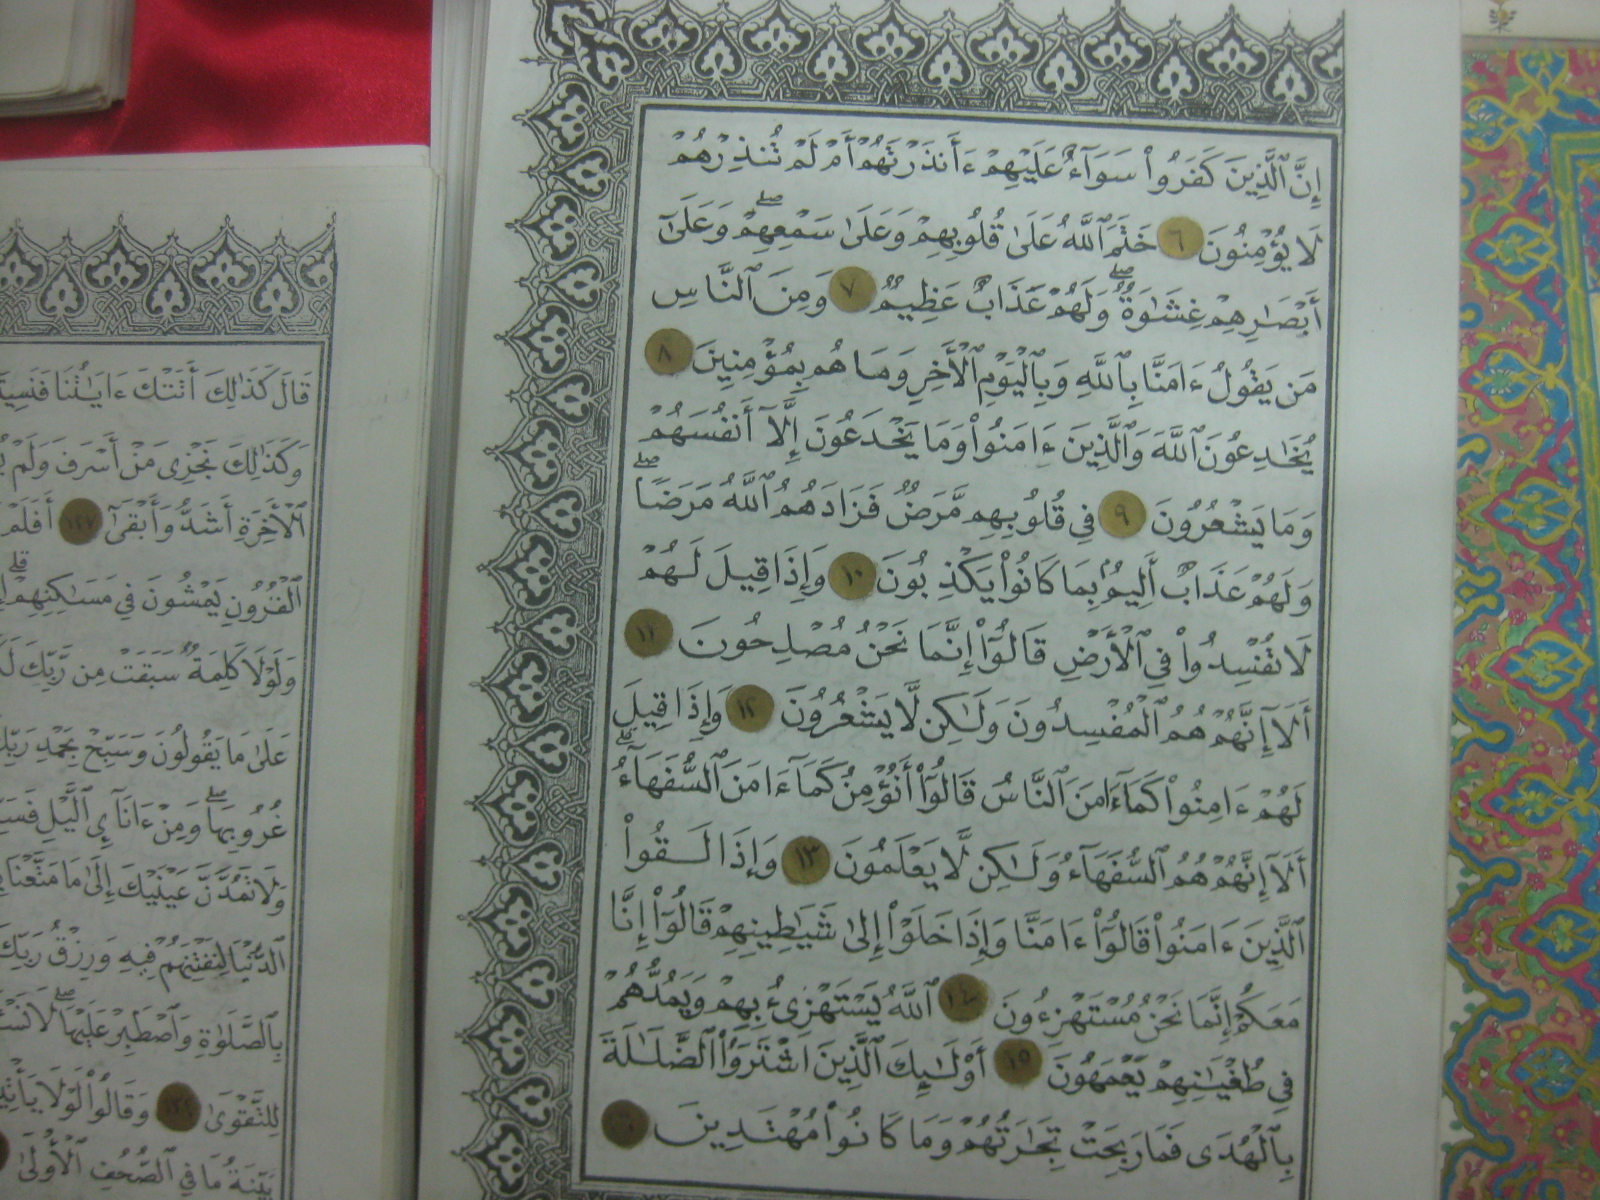 إِنَّ ٱلَّذِينَ كَفَرُوا۟ سَوَآءٌ عَلَيْهِمْ ءَأَنذَرْتَهُمْ أَمْ لَمْ تُنذِرْهُمْ
لَا يُؤْمِنُونَ ٦ خَتَمَ ٱللَّهُ عَلَىٰ قُلُوبِهِمْ وَعَلَىٰ سَمْعِهِمْ ۖ وَعَلَىٰٓ
أَبْصَـٰرِهِمْ غِشَـٰوَةٌ ۖ وَلَهُمْ عَذَابٌ عَظِيمٌ ٧ وَمِنَ ٱلنَّاسِ
مَن يَقُولُ ءَامَنَّا بِٱللَّهِ وَبِٱلْيَوْمِ ٱلْأَخِرِ وَمَا هُم بِمُؤْمِنِينَ ٨
يُخَـٰدِعُونَ ٱللَّهَ وَٱلَّذِينَ ءَامَنُوا۟ وَمَا يَخْدَعُونَ إِلَّآ أَنفُسَهُمْ
وَمَا يَشْعُرُونَ ٩ فِى قُلُوبِهِم مَّرَضٌ فَزَادَهُمُ ٱللَّهُ مَرَضًا ۖ
وَلَهُمْ عَذَابٌ أَلِيمٌۢ بِمَا كَانُوا۟ يَكْذِبُونَ ١٠ وَإِذَا قِيلَ لَهُمْ
لَا تُفْسِدُوا۟ فِى ٱلْأَرْضِ قَالُوٓا۟ إِنَّمَا نَحْنُ مُصْلِحُونَ ١١
أَلَآ إِنَّهُمْ هُمُ ٱلْمُفْسِدُونَ وَلَـٰكِن لَّا يَشْعُرُونَ ١٢ وَإِذَا قِيلَ
لَهُمْ ءَامِنُوا۟ كَمَآ ءَامَنَ ٱلنَّاسُ قَالُوٓا۟ أَنُؤْمِنُ كَمَآ ءَامَنَ ٱلسُّفَهَآءُ ۗ
أَلَآ إِنَّهُمْ هُمُ ٱلسُّفَهَآءُ وَلَـٰكِن لَّا يَعْلَمُونَ ١٣ وَإِذَا لَقُوا۟
ٱلَّذِينَ ءَامَنُوا۟ قَالُوٓا۟ ءَامَنَّا وَإِذَا خَلَوْا۟ إِلَىٰ شَيَـٰطِينِهِمْ قَالُوٓا۟ إِنَّا
مَعَكُمْ إِنَّمَا نَحْنُ مُسْتَهْزِءُونَ ١٤ ٱللَّهُ يَسْتَهْزِئُ بِهِمْ وَيَمُدُّهُمْ
فِى طُغْيَـٰنِهِمْ يَعْمَهُونَ ١٥ أُو۟لَـٰٓئِكَ ٱلَّذِينَ ٱشْتَرَوُا۟ ٱلضَّلَـٰلَةَ
بِٱلْهُدَى فَمَا رَبِحَتْ تِجَـٰرَتُهُمْ وَمَا كَانُوا۟ مُهْتَدِينَ
قَالَ كَذَٰلِكَ أَتَتْكَ ءَايَـٰتُنَا
وَكَذَٰلِكَ نَجْزِى مَنْ أَسْرَفَ وَلَمْ
ٱلْأَخِرَةِ أَشَدُّ وَأَبْقَىٰٓ ١٢٧ أَفَلَمْ
ٱلْقُرُونِ يَمْشُونَ فِى مَسَـٰكِنِهِمْ ۗ
وَلَوْلَا كَلِمَةٌ سَبَقَتْ مِن رَّبِّكَ
عَلَىٰ مَا يَقُولُونَ وَسَبِّحْ بِحَمْدِ رَبِّكَ
غُرُوبِهَا ۖ وَمِنْ ءَانَآئِ ٱلَّيْلِ
وَلَا تَمُدَّنَّ عَيْنَيْكَ إِلَىٰ مَا مَتَّعْنَا
ٱلدُّنْيَا لِنَفْتِنَهُمْ فِيهِ وَرِزْقُ رَبِّكَ
بِٱلصَّلَوٰةِ وَٱصْطَبِرْ عَلَيْهَا ۖ لَا
لِلتَّقْوَىٰ وَقَالُوا۟ لَوْلَا
بَيِّنَةُ مَا فِى ٱلصُّحُفِ ٱلْأُولَىٰ